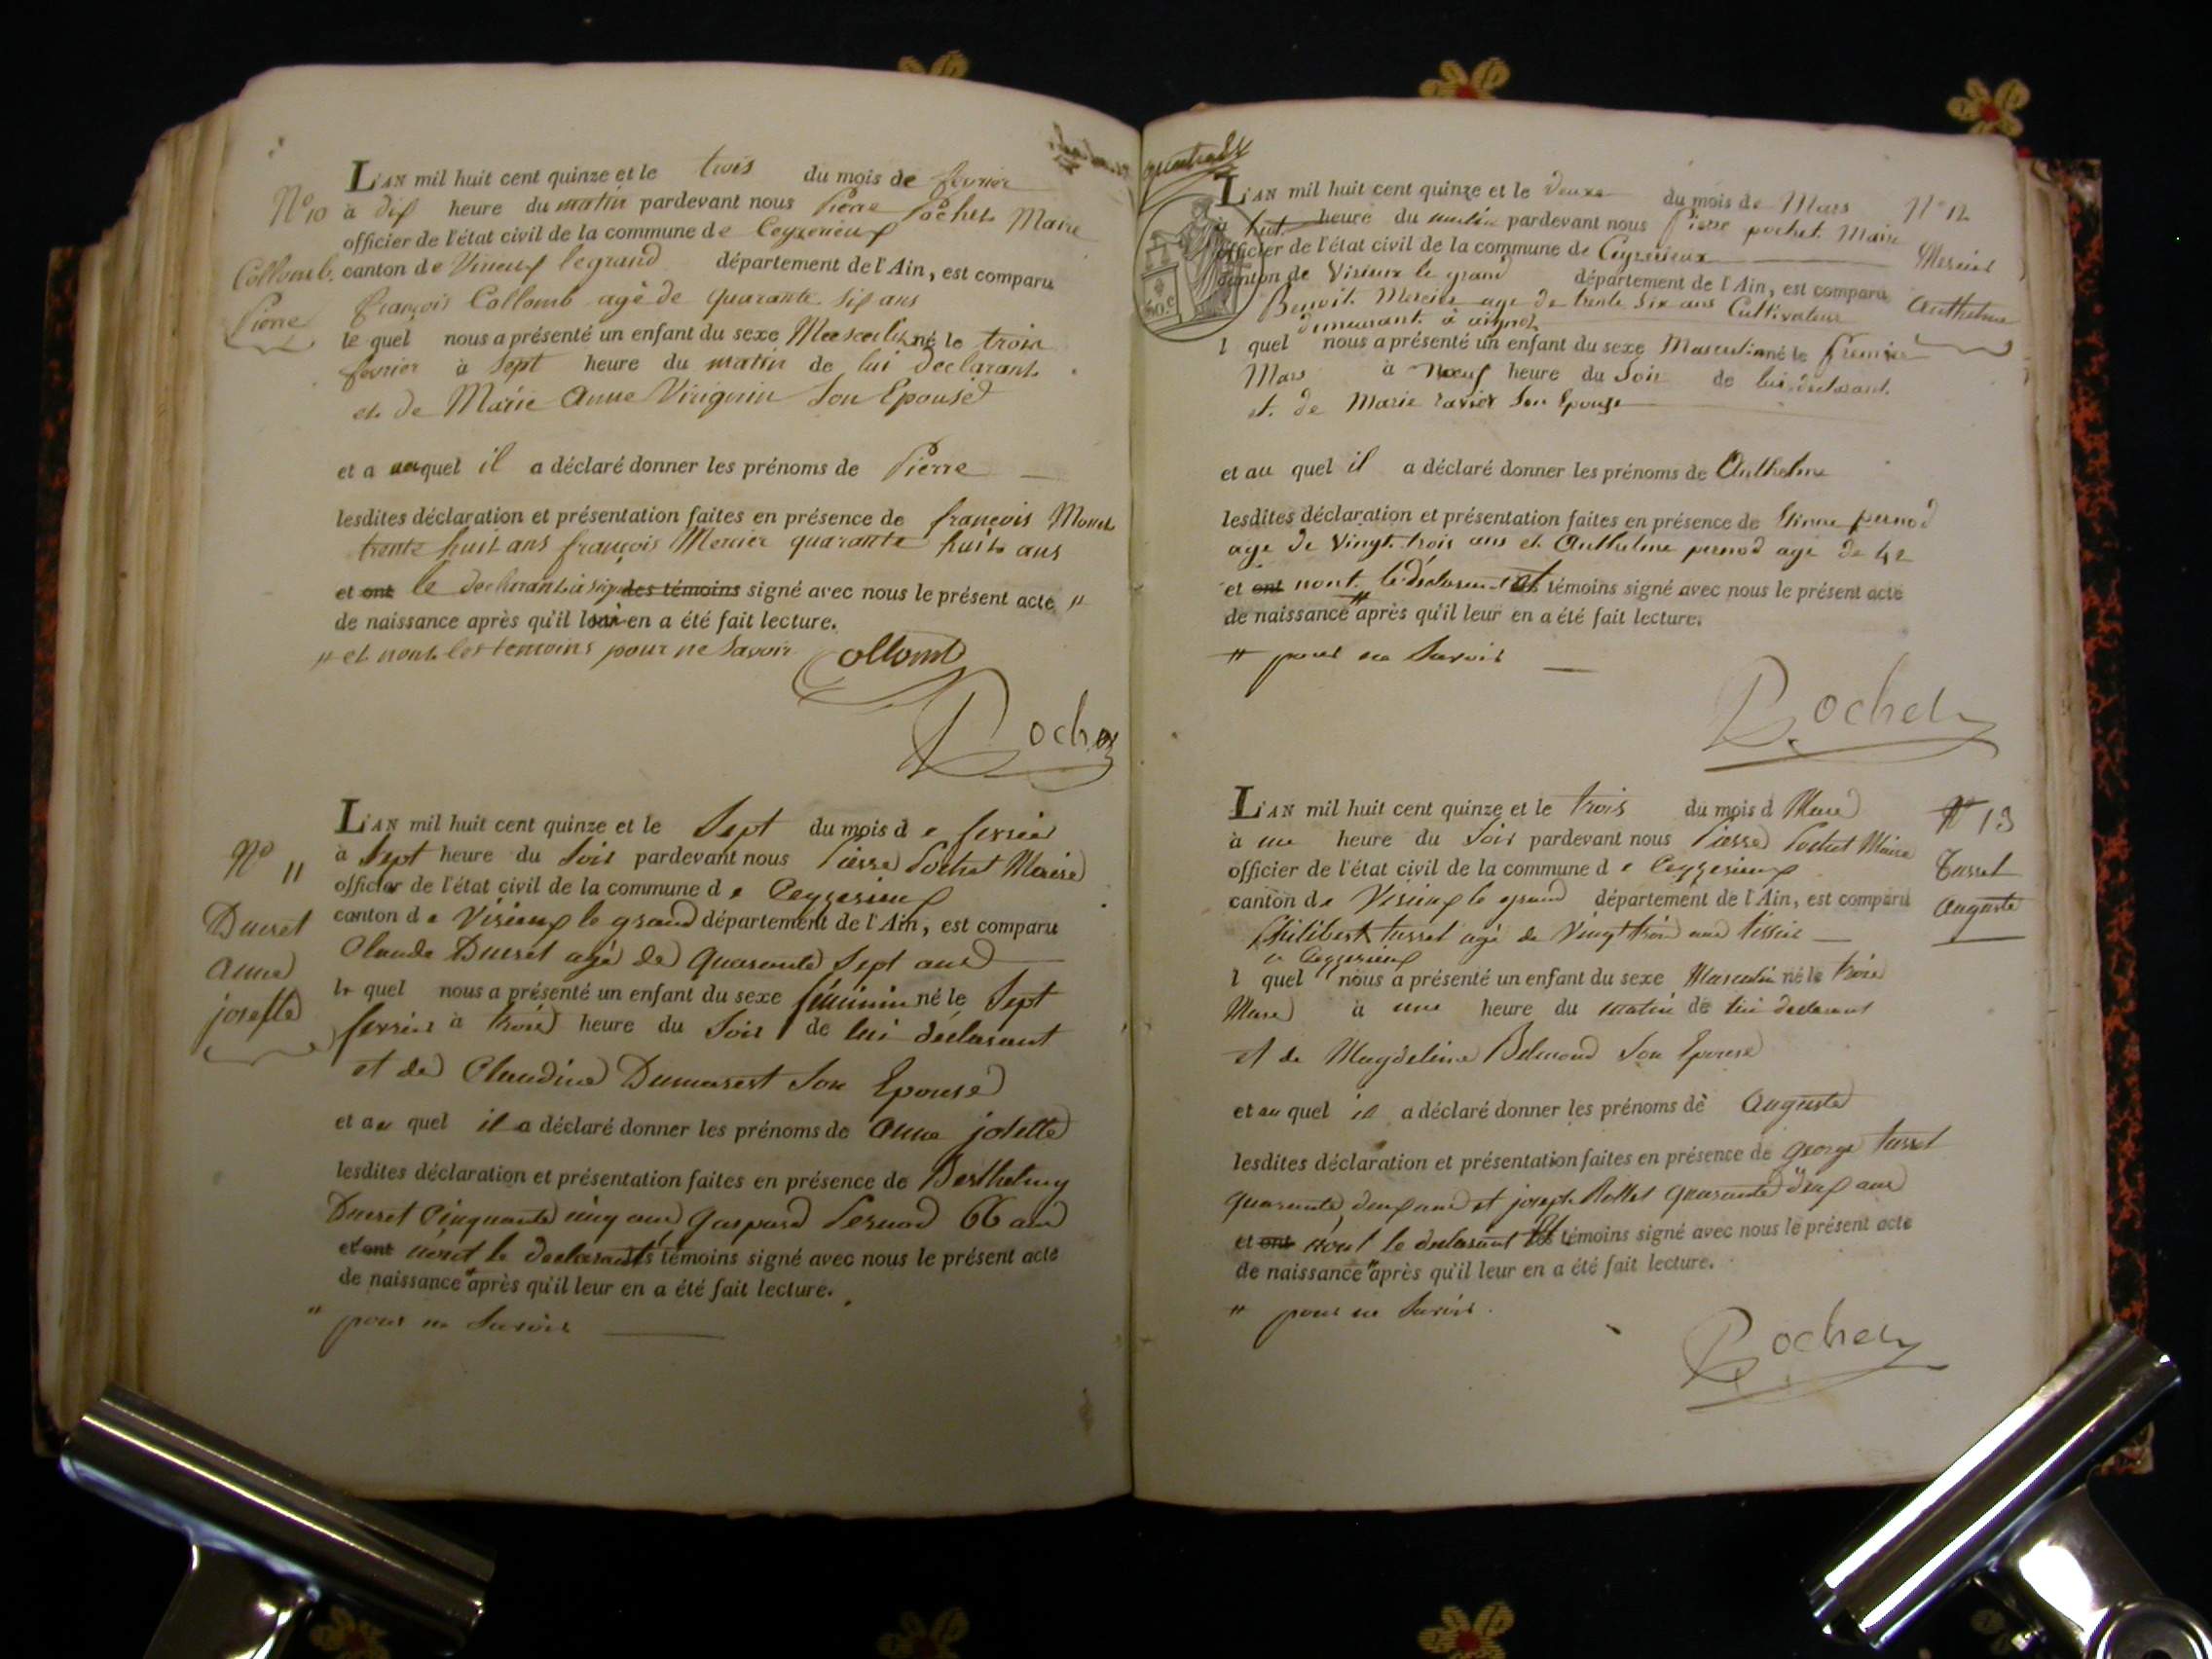 L'AN mil huit cent quinze et le trois du mois de fevrier
N° 10 à dix heure du matin pardevant nous Pierre Pochet Maire
officier de l'état civil de la commune de Ceyzerieux
Collomb canton de Virieux legrand département de l'Ain, est comparu
Pierre françois Collomb agé de quarante six ans
le quel nous a présenté un enfant du sexe Masculin né le trois
fevrier à Sept heure du matin de lui déclarant
et de Marie Anne Son Epouse
et a auquel il a déclaré donner les prénoms de Pierre
lesdites déclaration et présentation faites en présence de françois
trente huit ans françois Mercier quarante huit ans
et ont le declarant à signé les témoins signé avec nous le présent acte "
de naissance après qu'il lui en a été fait lecture.
" et nont les temoins pour ne Savoir Collomb
Pochet
L'AN mil huit cent quinze et le Sept du mois de fevrier
N° 11 à Sept heure du Soir pardevant nous Pierre Pochet Maire
officier de l'état civil de la commune de Ceyzerieux
Ducret canton de Virieux le grand département de l'Ain, est comparu
Anne Claude Ducret agé de quarante Sept ans
josette le quel nous a présenté un enfant du sexe féminin né le Sept
fevrier à trois heure du Soir de lui déclarant
et de Claudine Dumarest Son Epouse
et au quel il a déclaré donner les prénoms de Anne josette
lesdites déclaration et présentation faites en présence de Berthelmy
Ducret Cinquante cinq ans Gaspard Pernod 66 ans
et ont n'ont le declarant les témoins signé avec nous le présent acte
de naissance " après qu'il leur en a été fait lecture.
" pour ne Savoir
L'AN mil huit cent quinze et le deuxe du mois de Mars N° 12
à huit heure du matin pardevant nous Pierre pochet Maire
officier de l'état civil de la commune de Ceyzerieux Mercier
canton de Virieux le grand département de l'Ain, est comparu
Benoit Mercier age de trente Six ans Cultivateur Anthelme
demeurant à
l quel nous a présenté un enfant du sexe Masculin né le premier
Mars à Neuf heure du Soir de lui déclarant
et de Marie Son Epouse
et au quel il a déclaré donner les prénoms de Anthelme
lesdites déclaration et présentation faites en présence de Etienne pernod
age de Vingt trois ans et Anthelme pernod age de 42
et ont nont le déclarant et les témoins signé avec nous le présent acte
de naissance " après qu'il leur en a été fait lecture.
" pour ne Savoir
Pochet
L'AN mil huit cent quinze et le trois du mois d Mars N° 13
à une heure du Soir pardevant nous Pierre Pochet Maire
officier de l'état civil de la commune de Ceyzerieux Turret
canton de Virieux le grand département de l'Ain, est comparu Auguste
Philibert turret agé de Vingt trois ans tissier
a Ceyzerieux
l quel nous a présenté un enfant du sexe Masculin né le trois
Mars à une heure du matin de lui declarant
et de Magdeleine Belmond Son Epouse
et au quel il a déclaré donner les prénoms de Auguste
lesdites déclaration et présentation faites en présence de george turret
quarante deux ans et joseph Rollet quarante deux ans
et ont n'ont le declarant et les témoins signé avec nous le présent acte
de naissance " après qu'il leur en a été fait lecture.
" pour ne Savoir.
Pochet